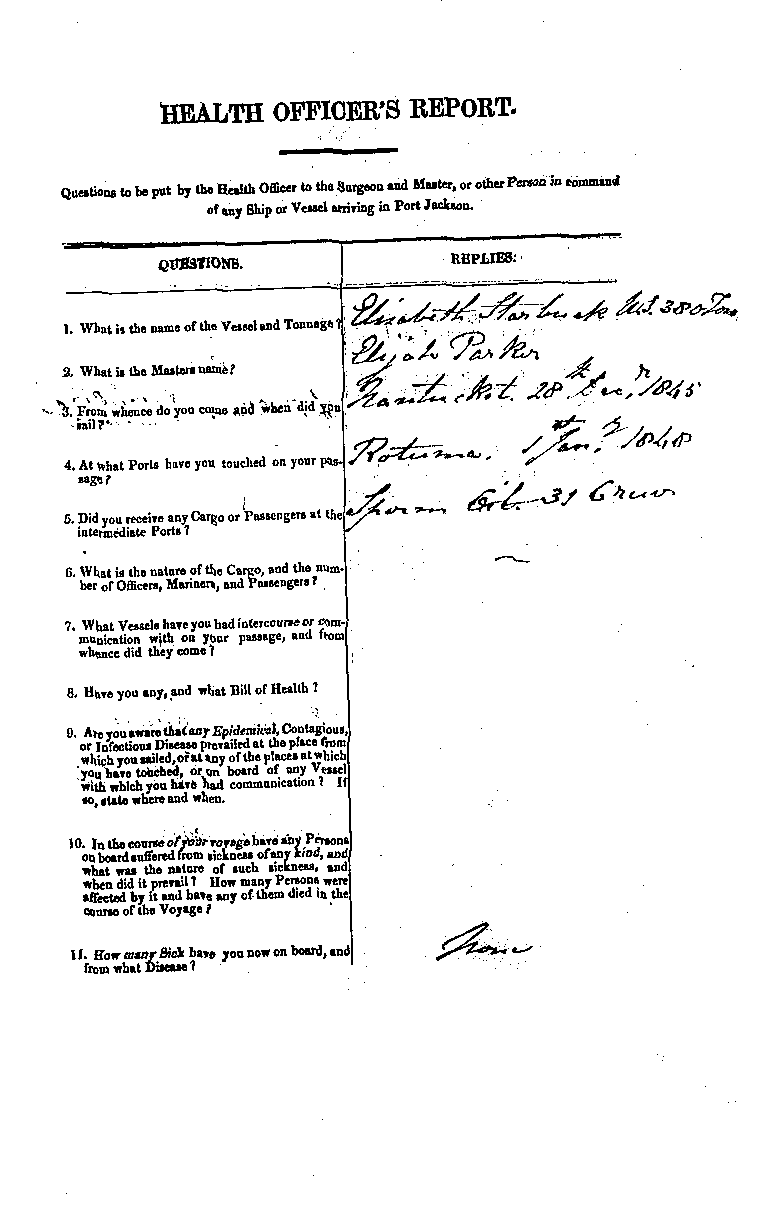 HEALTH OFFICER'S REPORT.
Questions to be put by the Health Officer to the Surgeon and Master, or other Person in command
of any Ship or Vessel arriving in Port Jackson.
QUESTIONS.
REPLIES:
1. What is the name of the Vessel and Tonnage?
Elizabeth Starbuck 380 Tons
2. What is the Masters name?
Elijah Parker
3. From whence do you come and when did you
sail?
Nantucket. 28th Decr, 1845
4. At what Ports have you touched on your pas-
sage?
Rotuma. 1st Jany. 1848
5. Did you receive any Cargo or Passengers at the
intermediate Ports?
Sperm Oil. 31 Crew
6. What is the nature of the Cargo, and the num-
ber of Officers, Mariners, and Passengers?
7. What Vessels have you had intercourse or com-
munication with on your passage, and from
whence did they come?
8. Have you any, and what Bill of Health?
9. Are you aware that any Epidemical, Contagious,
or Infectious Disease prevailed at the place from
which you sailed, or at any of the places at which
you have touched, or on board of any Vessel
with which you have had communication? If
so, state where and when.
10. In the course of your voyage have any Persons
on board suffered from sickness of any kind, and
what was the nature of such sickness, and
when did it prevail? How many Persons were
affected by it and have any of them died in the
course of the Voyage?
11. How many Sick have you now on board, and
from what Disease?
None